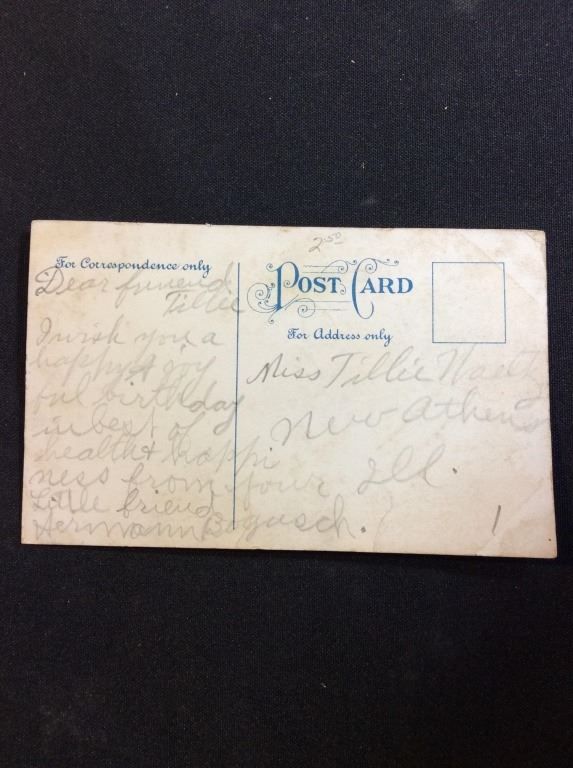 2.50
For Correspondence only
POST CARD
For Address only
Dear friend
Tillie
I wish you a
happy & joy
out birthday
in best of
health & happi
ness from your
Little friend
Hermann Bogusch.
Miss Tillie
New Athens
Ill.
1